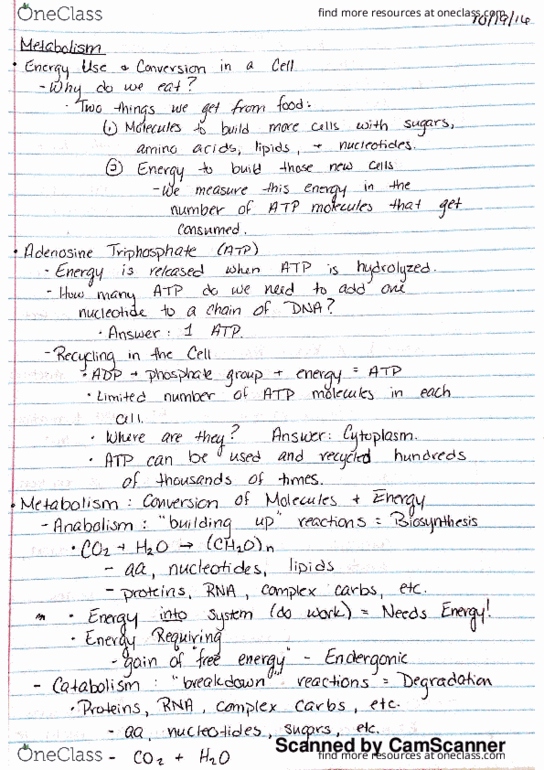 OneClass find more resources at oneclass.com
10/19/16
Metabolism
• Energy Use & Conversion in a Cell
- Why do we eat?
• Two things we get from food:
① Molecules to build more cells with sugars,
amino acids, lipids, + nucleotides.
② Energy to build those new cells
- We measure this energy in the
number of ATP molecules that get
consumed.
• Adenosine Triphosphate (ATP)
- Energy is released when ATP is hydrolyzed.
- How many ATP do we need to add one
nucleotide to a chain of DNA?
• Answer: 1 ATP.
- Recycling in the Cell
• ADP + phosphate group + energy = ATP
• Limited number of ATP molecules in each
cell.
• Where are they? Answer: Cytoplasm.
• ATP can be used and recycled hundreds
of thousands of times.
• Metabolism: Conversion of Molecules + Energy
- Anabolism: "building up" reactions = Biosynthesis
• CO2 + H2O → (CH2O)n
- aa, nucleotides, lipids
- proteins, RNA, complex carbs, etc.
• Energy into system (do work) = Needs Energy!
• Energy Requiring
- gain of "free energy" - Endergonic
- Catabolism: "breakdown" reactions = Degradation
• Proteins, RNA, complex carbs, etc.
- aa, nucleotides, sugars, etc.
Scanned by CamScanner
OneClass - CO2 + H2O find more resources at oneclass.com